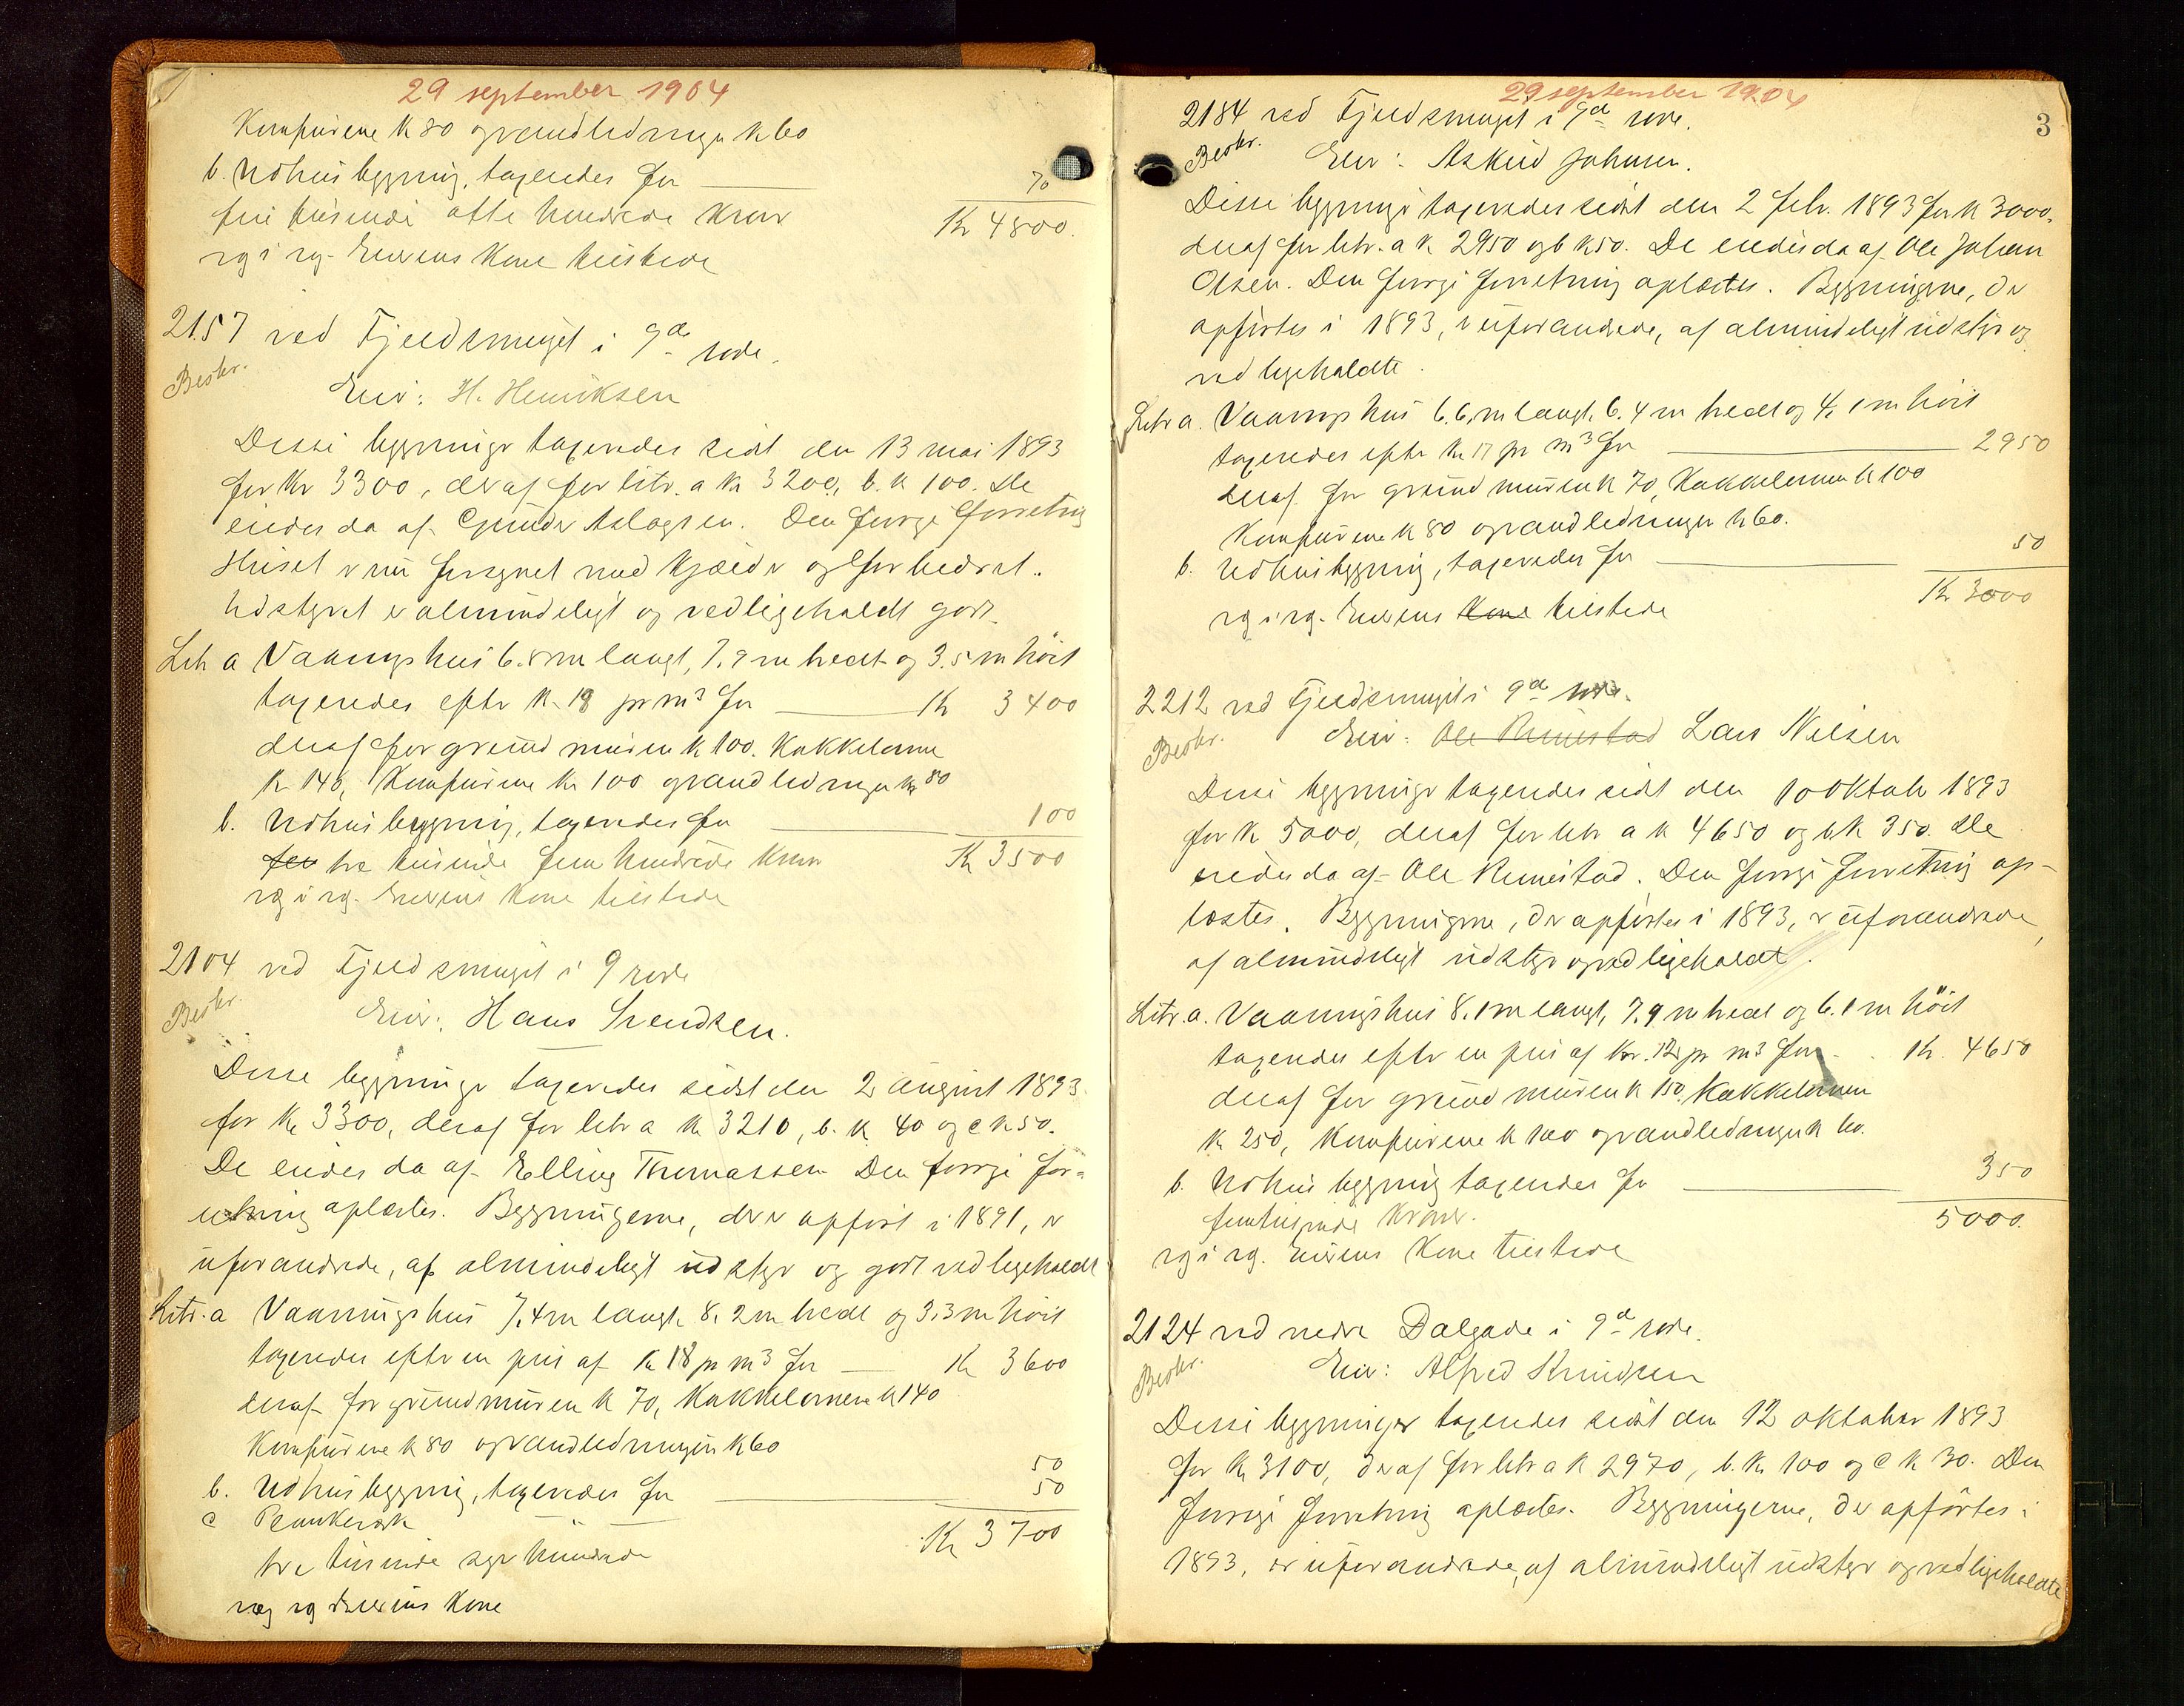 29 september 1904
Komfurene k 80 og vandledningen k 60
b. Udhusbygning, taxeredes for 70
fire tusinde otte hundrede kroner Kr 4800.
rg i rg. Eierens kone tilstede
2157 ved Fjeldsmuget i 9de rode.
Beskr.
Eier: H. Henriksen
Disse bygninger taxeredes sidst den 13 mai 1893
for Kr 3300, deraf for litr. a Kr 3200, b. k 100. De
eiedes da af Gunder Aslagsen. Den forrige forretning
Huset er nu forsynet med kjælder og forbedret.
Udstyret er almindeligt og vedligeholdt godt.
Litr a Vaaningshus 6.8 m langt, 7.9 m bredt og 3.5 m høit
taxeredes efter k. 18 pr m3 for Kr 3400
deraf for grundmuren k 100. Kakkelovnene
k 140, Komfurene kr 100 og vandledningen kr 80
b. Udhusbygning, taxeredes for 100
tre tusinde fem hundrede kroner Kr 3500
rg i rg. Eierens kone tilstede
2104 ved Fjeldsmuget i 9 rode
Beskr.
Eier: Hans Svendsen.
Disse bygninger taxeredes sidst den 2 august 1893
for Kr 3300, deraf for litr a kr 3210, b. k 40 og c k 50.
De eiedes da af Elling Thomassen Den forrige for=
retning oplæstes. Bygningerne, der er opført i 1891, er
uforandrede, af almindeligt udstyr og godt vedligeholdt
Litr. a Vaaningshus 7.4 m langt 8.2 m bredt og 3.3 m høit
taxeredes efter en pris af kr 18 pr m3 for Kr 3600
deraf for grundmuren k 70, Kakkelovnene k 140
Komfurene k 80 og vandledningen k 60
b. Udhusbygning, taxeredes for 50
c Plankeværk 50
tre tusinde syv hundrede Kr 3700
rg rg Eierens kone
29 september 1904
3
2184 ved Fjeldsmuget i 9de rode.
Beskr.
Eier: Askild Johnsen.
Disse bygninger taxeredes sidst den 2 febr. 1893 for k 3000,
deraf for litr. a k 2950 og b k 50. De eiedes da af Ole Johan
Olsen. Den forrige forretning oplæstes. Bygningerne, der
opførtes i 1893, er uforandrede, af almindeligt udstyr og
vedligeholdte.
Litr a. Vaaningshus 6.6 m langt, 6.4 m bredt og 4.1 m høit
taxeredes efter kr 17 pr m3 for 2950
deraf for grundmuren k 70, Kakkelovnene k 100
Komfurene k 80 og vandledningen k 60.
b. Udhusbygning, taxeredes for 50
Kr 3000
rg i rg. Eierens kone tilstede
2212 ved Fjeldsmuget i 9de rode.
Beskr.
Eier: Ole Rimestad Lars Nilsen
Disse bygninger taxeredes sidst den 10 Oktob 1893
for k 5000, deraf for litr a k 4650 og b k 350. De
eiedes da af Ole Rimestad. Den forrige forretning op-
læstes. Bygningerne, der opførtes i 1893, er uforandrede,
af almindeligt udstyr og vedligeholdt.
Litr. a. Vaaningshus 8.1 m langt, 7.9 m bredt og 6.1 m høit
taxeredes efter en pris af kr. 12 pr m3 for Kr. 4650
deraf for grundmuren k 150, Kakkelovnene
k 250, Komfurene k 100 og vandledningen k 60.
b. Udhusbygning taxeredes for 350
femtusinde kroner. 5000.
rg i rg. Eierens kone tilstede
2124 ved nedre Dalgade i 9de rode.
Beskr.
Eier: Alfred Knudsen
Disse bygninger taxeredes sidst den 12 oktober 1893
for Kr 3100, deraf for litr a k 2970, b. kr 100 og c k 30. Den
forrige forretning oplæstes. Bygningerne, der opførtes i
1893, er uforandrede, af almindeligt udstyr og vedligeholdte